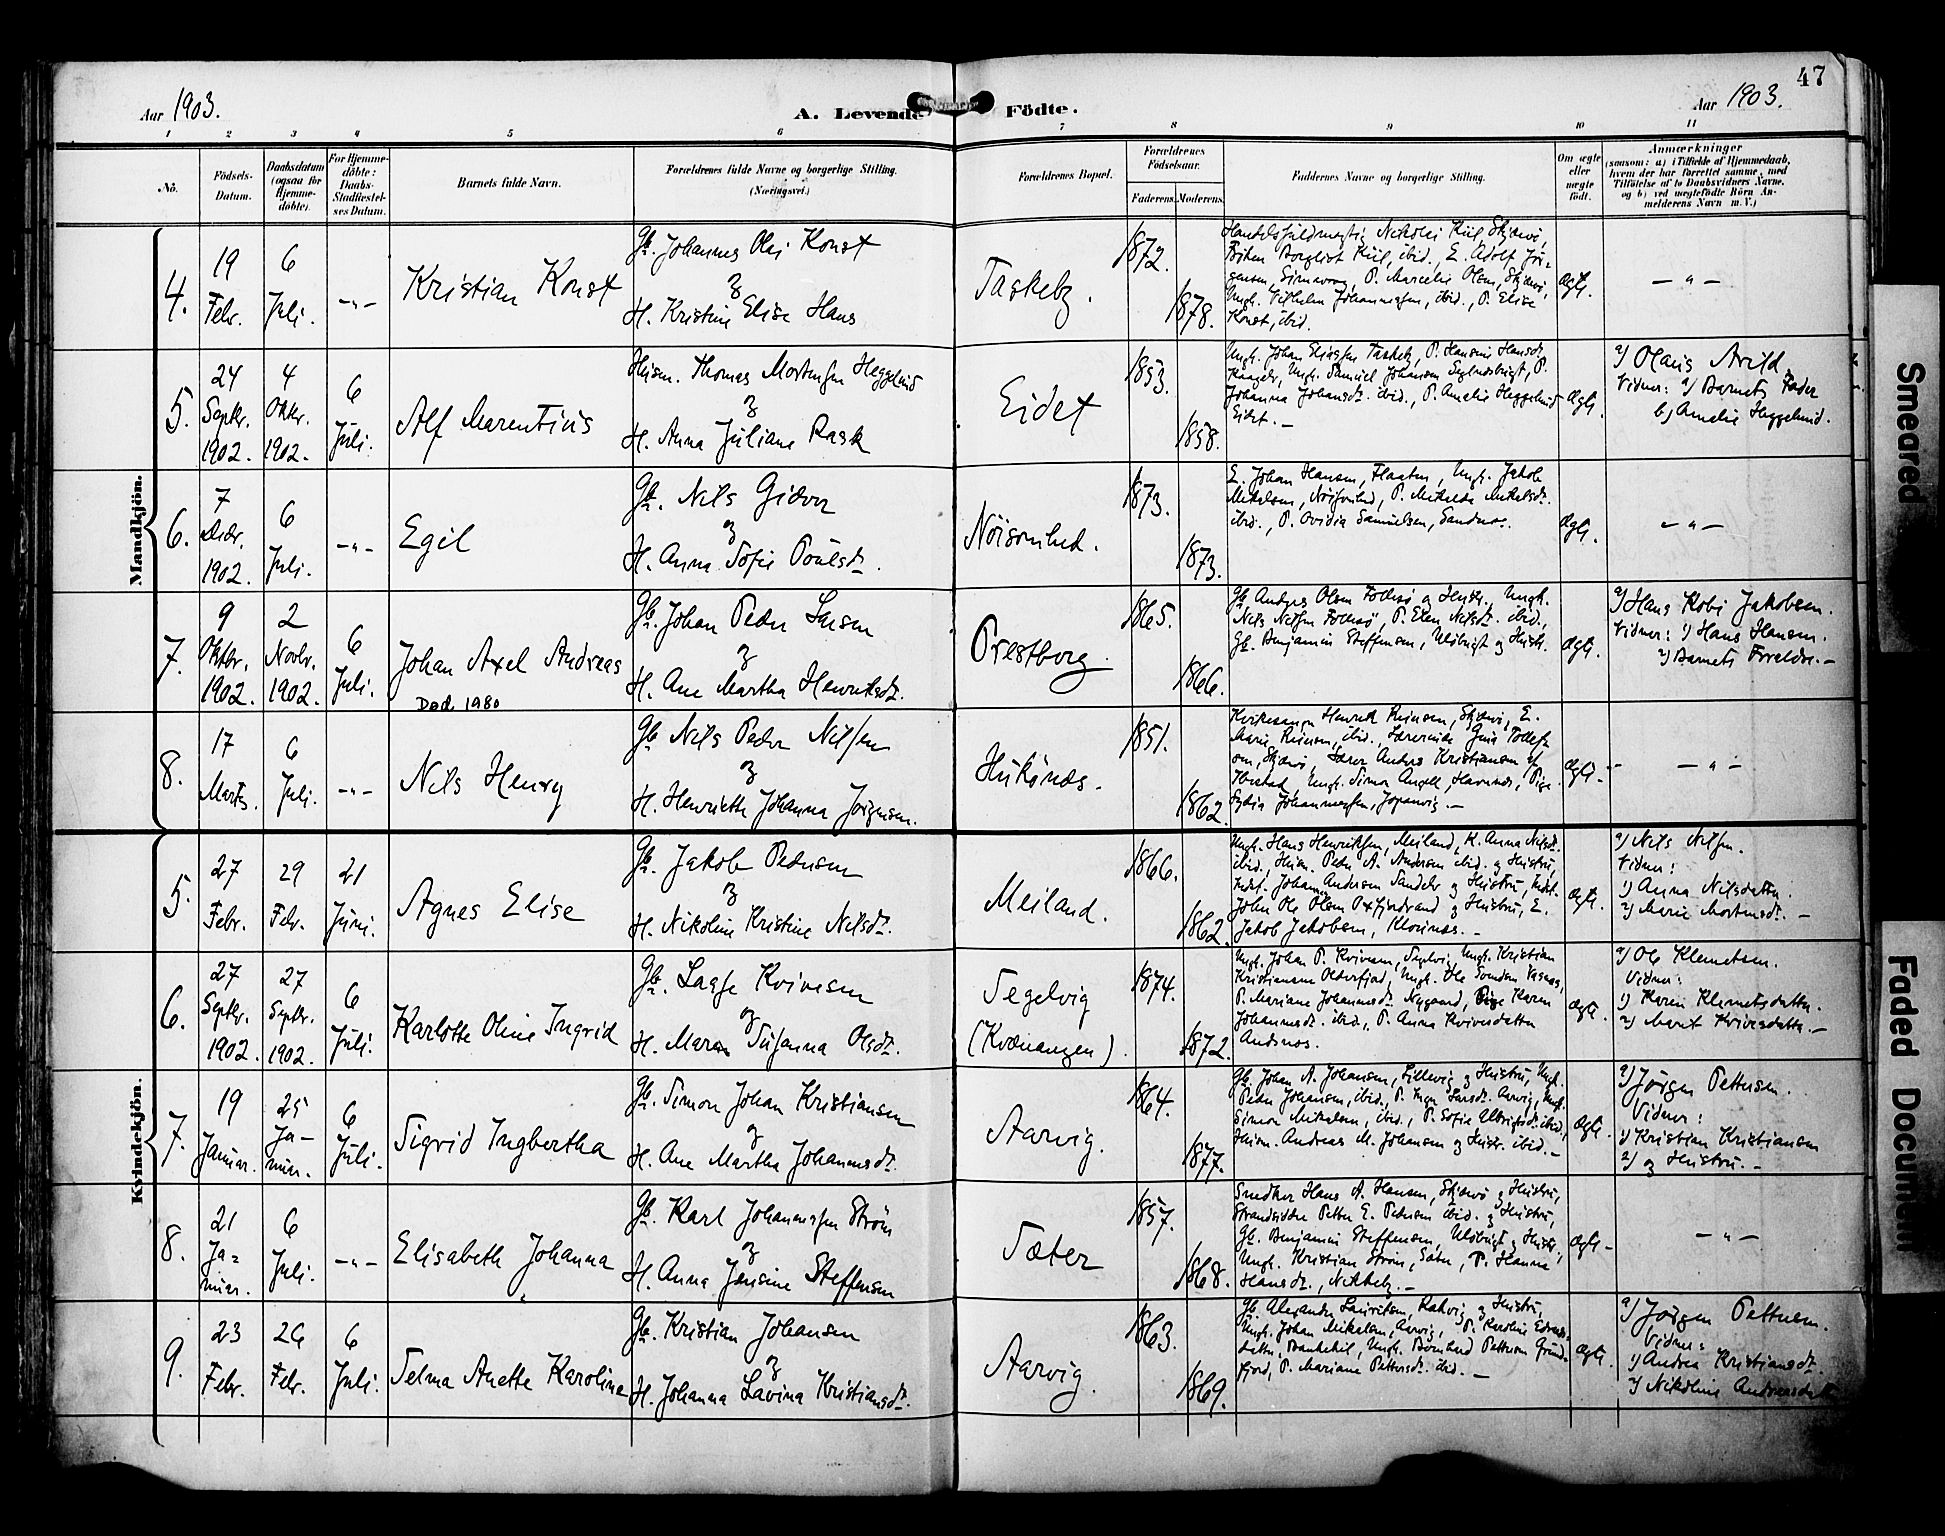 47
Aar 1903.
A. Levende Födte.
Aar 1903.
1 2 3 4 5 6 7 8 9 10 11
No.
Födsels-Datum.
Daabsdatum (ogsaa for Hjemme-döbte).
For Hjemme-döbte: Daabs-Stadfæstel-ses Datum.
Barnets fulde Navn.
Forældrenes fulde Navne og borgerlige Stilling. (Næringsvei.)
Forældrenes Bopæl.
Forældrenes Födselsaar.
Faderens. Moderens.
Faddernes Navne og borgerlige Stilling.
Om ægte eller uægte födt.
Anmærkninger
(saasom: a) i Tilfælde af Hjemmedaab, hvem der har forrettet samme, med Tilföielse af to Daabsvidners Navne, og b) ved uægtefödte Börn An-melderens Navn m. V.)
Mandkjön.
4.
19 Febr.
6 Juli.
-"-
Kristian Konst
Gb. Johannes Olai Konst
og
H. Kristine Elise Hans
Taskeby.
1872.
1878.
Handelsfuldmægtig Nikolai Kiil, Skjærvö,
ibid., E. Adolf Jör-
gensen, P. Marcelie Olsen, Skjærvö,
Ungk. Vilhelm Johannessen, ibid., P. Elise
Konst, ibid.
ægte.
- " -
5.
24 Septbr. 1902.
4 Oktbr. 1902.
6 Juli.
Alf Marentius
Husm. Thomas Mortensen Heggelund
og
H. Anna Juliane Rask
Eidet
1853.
1858.
Ungk. Johan Eliassen Taskeby, P. Hansine Hansdt.
Kaagen, Ungk. Samuel Johansen P.
Johanna Johansdt. ibid., P. Amalie Heggelund
Eidet.-
ægte.
a) Olaus Arild.
Vidner: 1) Barnets Fader
b) Amalie Heggelund.
6.
7 Decbr. 1902.
6 Juli.
-"-
Egil
Gb. Nils Gidver
og
H. Anna Sofie Poulsdt.
Nöisomhed.
1873.
1873.
E. Johan Hansen, Flaaten, Ungk. Jakob
Mikalsen, Nöisomhed, P. Mikalsdt.
ibid., P. Ovidia Samuelsen, Sandnes.
ægte.
- " -
7.
9 Oktbr. 1902.
2 Novbr. 1902.
6 Juli.
Johan Axel Andreas
Død 1980
Gb. Johan Peder Larsen
og
H. Ane Martha Henriksdt.
Prestborg
1865.
1866.
Gb. Anders Olsen Follesö og Hustr., Ungk.
Nils Nilsen Follesö, P. Elen Nilsdt. ibid.,
Gb. Benjamin Steffensen, Ulöbugt og Hustr.
ægte.
a) Hans Kobi Jakobsen.
Vidner: 1) Hans Hansen.
2) Barnets Foreldre.-
8.
17 Marts.
6 Juli.
-"-
Nils Henry
Gb. Nils Peder Nilsen
og
H. Henriette Johanna Jörgensen.
Hukönæs.
1851.
1862.
Henrik Reiersen, Skjærvö, E.
Marie Reiersen, ibid., Lærerinde
Skjærvö, Lærer Anders Kristiansen
Ibestad, Ungk. Simon Angell, Havnnes, Pige
Lydia Johannessen,
ægte.-
- " -
Kvindekjön.
5.
27 Febr.
29 Febr.
21 Juni.
Agnes Elise
Gb. Jakob Pedersen
og
H. Nikoline Kristine Nilsdt.
Meiland.
1866.
1862.
Ungk. Hans Henriksen, Meiland, K. Anna Nilsdt.
ibid., Husm. Peder A. Andersen ibid. og Hustru,
Johan Andersen Sandelv og Hustru,
John Ole Olsen Oxfjordvand og Hustru, E.
Jakob Jakobsen, -
ægte.
a) Nils Nilsen.
Vidner:
1) Anna Nilsdatter.
2) Marie Mortensdt. -
6.
27 Septbr. 1902.
27 Septbr. 1902.
6 Juli.
Karlotte Oline Ingrid
Gb. Lasse Kvivesen
og
H. Maren Susanna Olsdt.
Segelvig (Kvænangen).
1874.
1872.
Ungk. Johan P. Kvivesen, Segelvig, Ungk. Kristian
Kristiansen Olderfjord, Ungk. Ole
P. Mariane Johannesdt. Nygaard, Pige Karen
Johannesdt. ibid., P. Anna Kvivesdatter
Andsnes.
ægte.
a) Ole Klemetsen.
Vidner:
1) Karen Klemetsdatter.
2) Marit Kvivesdatter.-
7.
19 Januar.
25 Ja-nuar.
6 Juli.
Sigrid Ingbertha
Gb. Simon Johan Kristiansen
og
H. Ane Martha Johannesdt.
Aarvig.
1864.
1877.
Gb. Johan A. Johansen, Lillevig og Hustru, Ungk.
Peder Johansen, ibid., P. Inga Larsdt. Aarvig, Ungk.
Simon Mikalsen, ibid., P. Sofie Albrigtsdt. ibid.,
Husm. Andreas M. Johansen og Hustr. ibid.-
ægte.
a) Jörgen Pettersen.
Vidner:
1) Kristian Kristiansen
2) og Hustru.-
8.
21 Ja-nuar.
6 Juli.
-"-
Elisabeth Johanna
Gb. Karl Johannessen Ström
og
H. Anna Jensine Steffensen
Sæter
1857.
1868.
Snedker Hans A. Hansen, Skjærvö og Hustru,
Strandsidder Petter E. Pedersen ibid. og Hustru,
Gb. Benjamin Steffensen, Ulöbugt og Hustr.,
Ungk. Kristian Ström, Sæter, P. Hanna
Hansdt., Nikkeby.-
ægte-
- " -
9.
23 Febr.
26 Febr.
6 Juli.
Selma Anette Karoline
Gb. Kristian Johansen
og
H. Johanna Lavina Kristiansdt.
Aarvig.
1863.
1869.
Gb. Alexander Lauritsen, Rakvig og Hustru,
Ungk. Johan Mikalsen, Aarvig, P. Karoline
Ungk. Bernhard Pettersen Grund-
fjord, P. Mariane Pettersdt. ibid.-
ægte.
a) Jörgen Pettersen.
Vidner:
1) Andrea Kristiansdt.
2) Nikoline Andreasdatt
Smeared
Faded Document